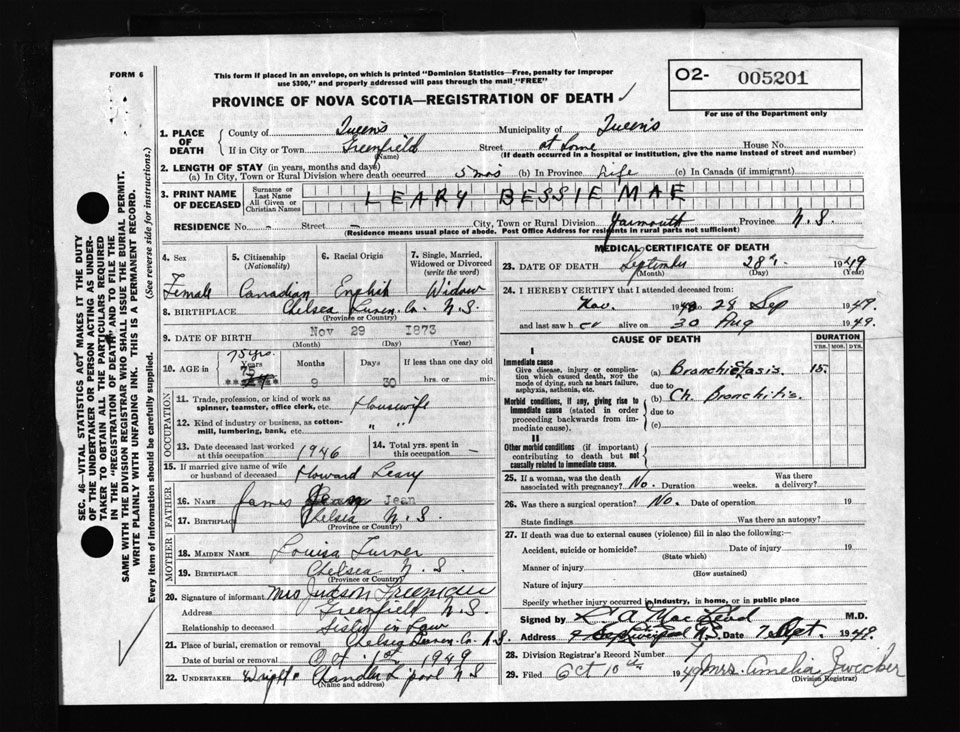 FORM 6
This form if placed in an envelope, on which is printed "Dominion Statistics—Free, penalty for improper
use $300," and properly addressed will pass through the mail "FREE"
O2- 005201
For use of the Department only
PROVINCE OF NOVA SCOTIA—REGISTRATION OF DEATH
1. PLACE OF DEATH
County of Queens Municipality of Queens
If in City or Town Greenfield Street at home House No.
(Name) (If death occurred in a hospital or institution, give the name instead of street and number)
2. LENGTH OF STAY (in years, months and days)
(a) In City, Town or Rural Division where death occurred 5 mos (b) In Province Life (c) In Canada (if immigrant)
3. PRINT NAME OF DECEASED
Surname or Last Name
All Given or Christian Names
LEARY BESSIE MAE
RESIDENCE No. - Street - City, Town or Rural Division Yarmouth Province N.S.
(Residence means usual place of abode. Post Office Address for residents in rural parts not sufficient)
4. Sex
Female
5. Citizenship (Nationality)
Canadian
6. Racial Origin
English
7. Single, Married, Widowed or Divorced (write the word)
Widow
8. BIRTHPLACE Chelsea Lunen. Co. N.S.
(Province or Country)
9. DATE OF BIRTH Nov 29 1873
(Month) (Day) (Year)
10. AGE in
75 yrs.
Years Months Days If less than one day old
75 9 30 hrs. or min.
OCCUPATION
11. Trade, profession, or kind of work as spinner, teamster, office clerk, etc. Housewife
12. Kind of industry or business, as cotton-mill, lumbering, bank, etc. " "
13. Date deceased last worked at this occupation 1946
14. Total yrs. spent in this occupation -
15. If married give name of wife or husband of deceased Howard Leary
FATHER
16. NAME James Jean
17. BIRTHPLACE Chelsea N.S.
(Province or Country)
MOTHER
18. MAIDEN NAME Louisa Turner
19. BIRTHPLACE Chelsea N.S.
(Province or Country)
20. Signature of informant Mrs Judson
Address Greenfield N.S.
Relationship to deceased Sister in Law
21. Place of burial, cremation or removal Chelsea Lunen. Co. N.S.
Date of burial or removal Oct. 1st 1949
22. UNDERTAKER Chandler L'pool N.S
(Name and address)
MEDICAL CERTIFICATE OF DEATH
23. DATE OF DEATH September 28th 1949
(Month) (Day) (Year)
24. I HEREBY CERTIFY that I attended deceased from:
Nov. to 28 Sep 1949.
and last saw h er alive on 30 Aug 1949.
CAUSE OF DEATH
DURATION
YRS. MOS. DYS.
I
Immediate cause
Give disease, injury or complication which caused death, NOT the mode of dying, such as heart failure, asphyxia, asthenia, etc.
(a) Bronchiectasis. 15.
due to
Morbid conditions, if any, giving rise to immediate cause (stated in order proceeding backwards from immediate cause).
(b) Ch. Bronchitis.
due to
(c)
II
Other morbid conditions (if important) contributing to death but not causally related to immediate cause.
25. If a woman, was the death associated with pregnancy? No. Duration weeks. Was there a delivery?
26. Was there a surgical operation? No. Date of operation 19
State findings Was there an autopsy?
27. If death was due to external causes (violence) fill in also the following:
Accident, suicide or homicide? Date of injury 19
(State which)
Manner of injury
(How sustained)
Nature of injury
Specify whether injury occurred in industry, in home, or in public place
Signed by MacLeod M.D.
Address Liverpool N.S. Date 7 Sept. 1949.
28. Division Registrar's Record Number
29. Filed Oct 10th 1949 Mrs. Amelia Zwicker
(Division Registrar)
SEC. 46—VITAL STATISTICS ACT MAKES IT THE DUTY
OF THE UNDERTAKER OR PERSON ACTING AS UNDERTAKER TO OBTAIN ALL THE PARTICULARS REQUIRED
IN THE "REGISTRATION OF DEATH" AND TO FILE THE
SAME WITH THE DIVISION REGISTRAR WHO SHALL ISSUE THE BURIAL PERMIT.
WRITE PLAINLY WITH UNFADING INK. THIS IS A PERMANENT RECORD.
Every item of information should be carefully supplied. (See reverse side for instructions.)